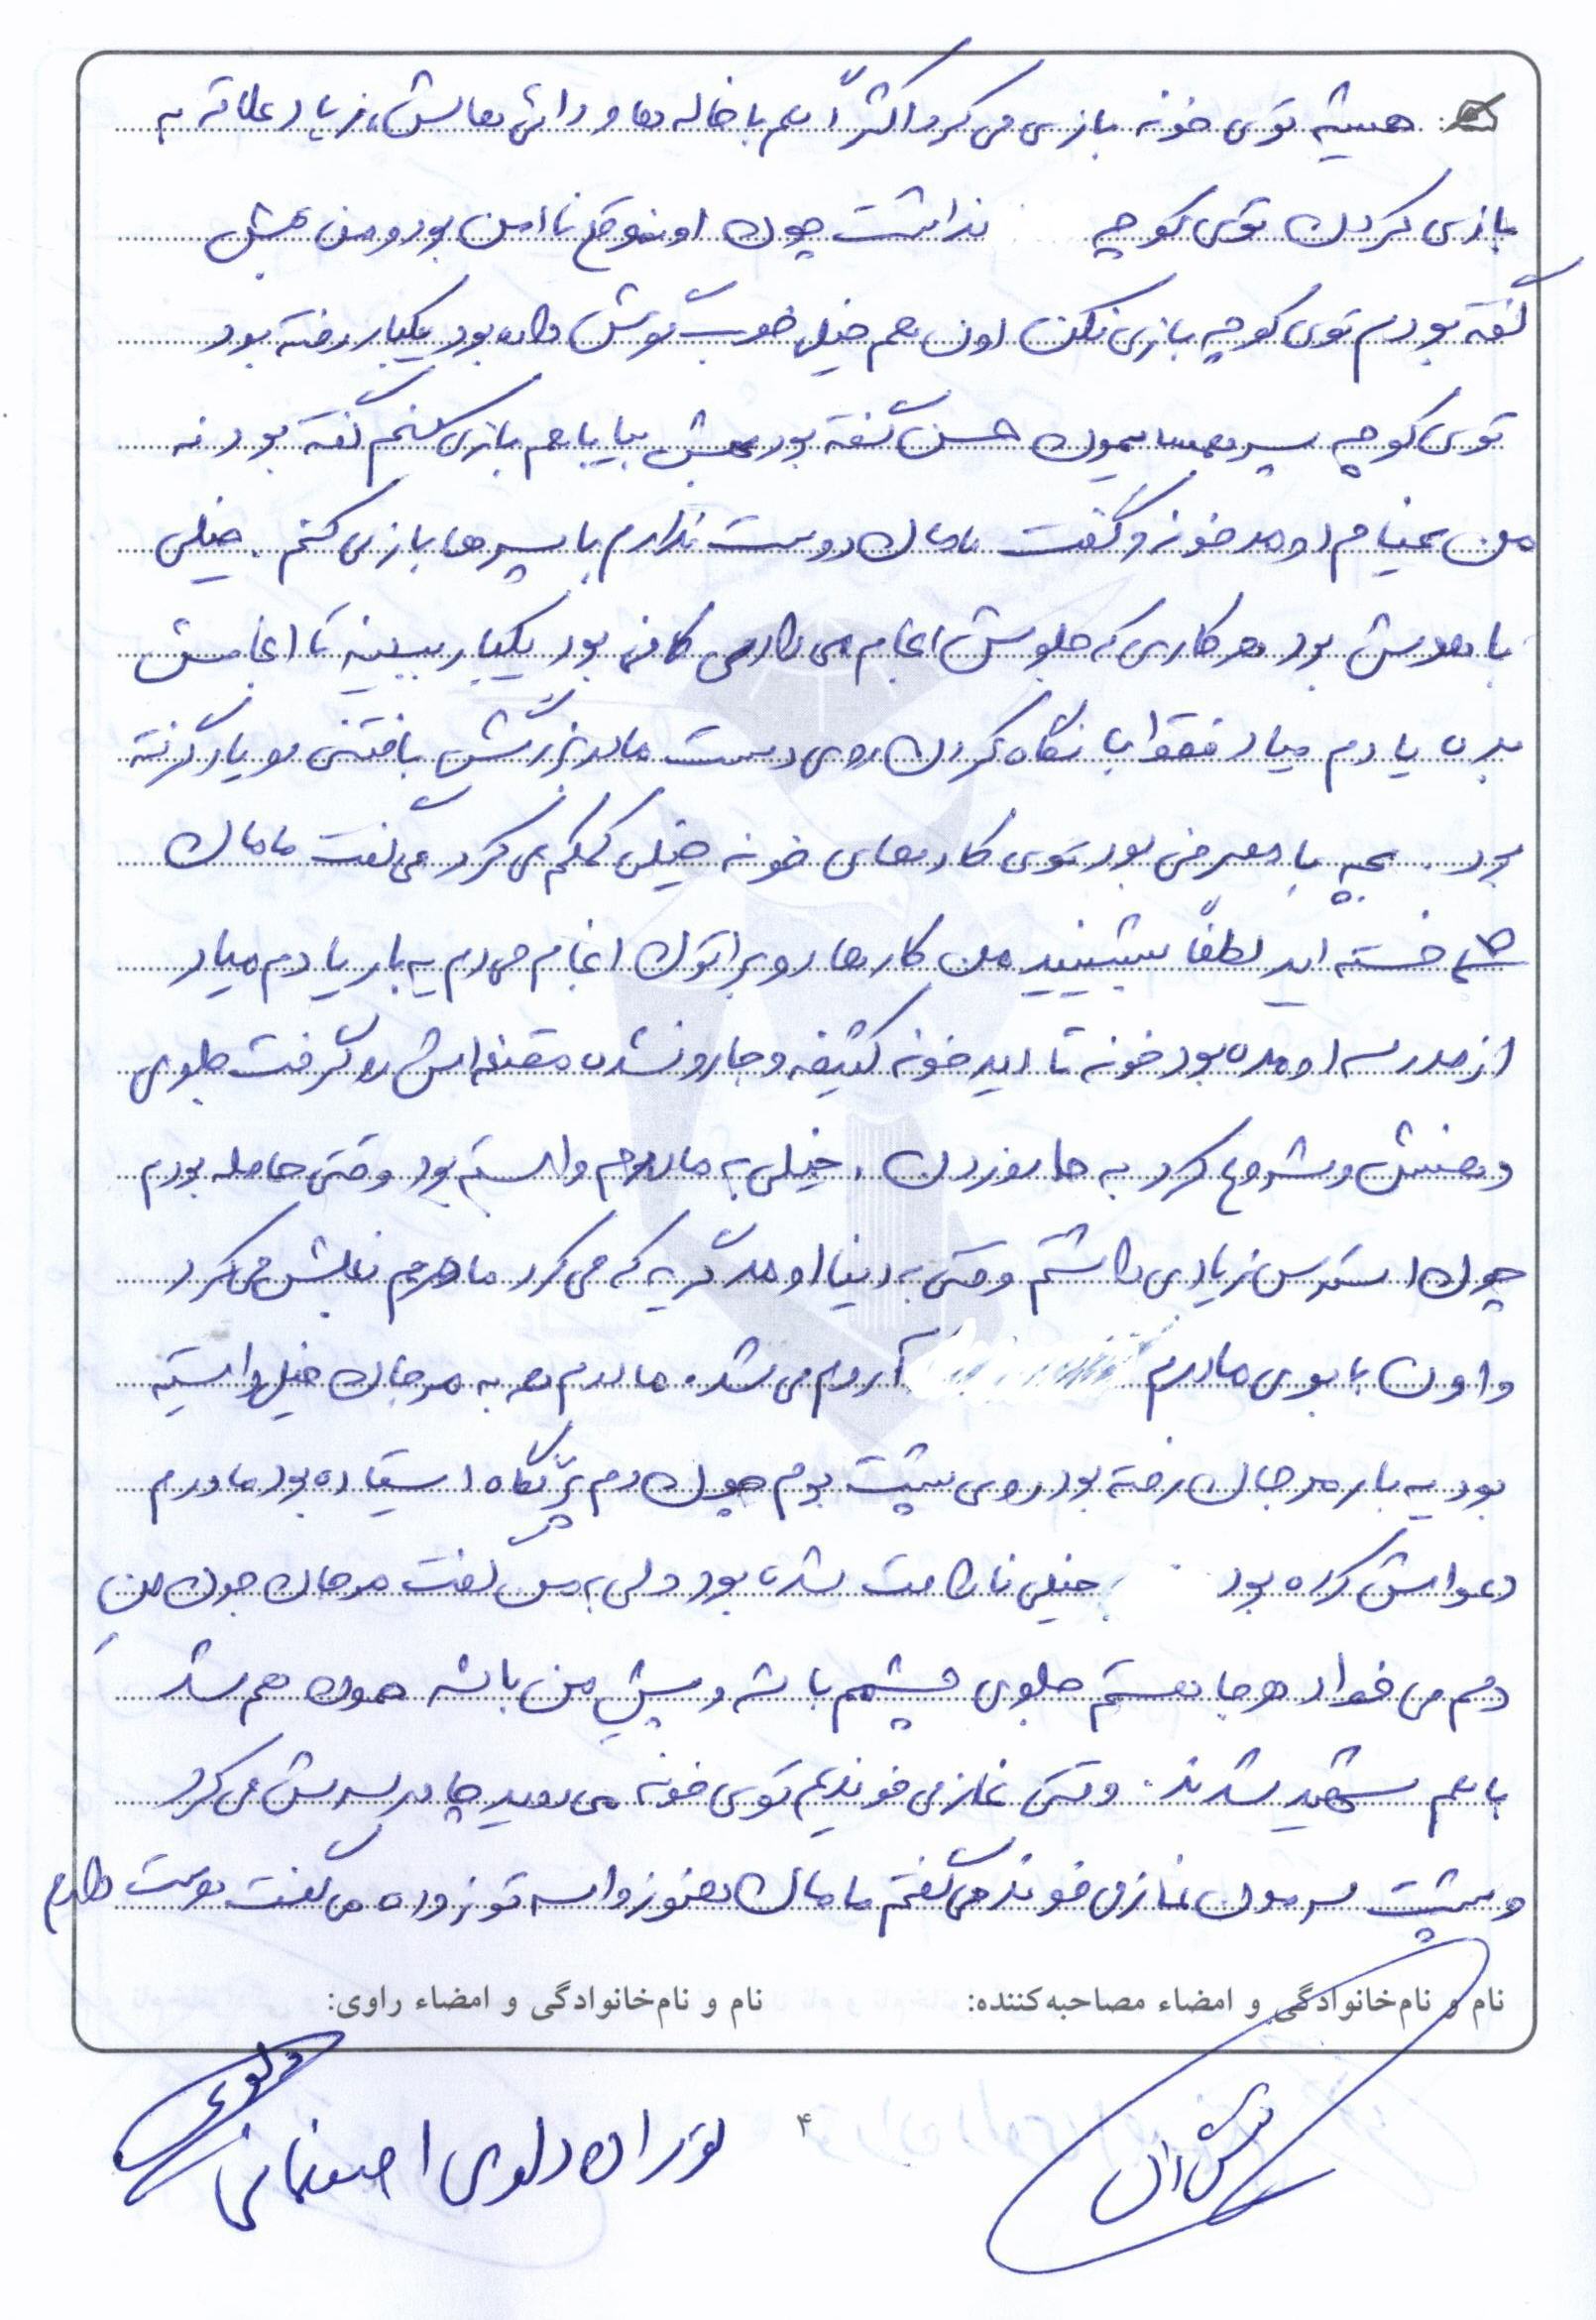 همیشه توی خونه بازی می کرد اکثراً هم با خاله ها و دائی هایش، زیاد علاقه به
بازی کردن توی کوچه نداشت چون اونموقع ناامن بود و من بهش
گفته بودم توی کوچه بازی نکن اون هم خیلی خوب گوش داده بود یکبار رفته بود
توی کوچه پسر همسایمون حسن گفته بود بهش بیا باهم بازی کنیم گفته بود نه
من نمیام اومد خونه و گفت مامان دوست ندارم با پسرها بازی کنم. خیلی
باهوش بود هر کاری که جلوش انجام می دادی کافی بود یکبار ببینه تا انجامش
بده یادم میاد فقط با نگاه کردن روی دست مادربزرگش بافتنی رو یاد گرفته
بود. بچه با معرفتی بود توی کارهای خونه خیلی کمکم می کرد می گفت مامان
شما خسته اید لطفاً بشینید من کارها رو براتون انجام می دم یه بار یادم میاد
از مدرسه اومده بود خونه تا دید خونه کثیفه و جارو نشده مقنعه اش رو گرفت جلوی
دهنش و شروع کرد به جارو زدن. خیلی به مادرم وابسته بود وقتی حامله بودم
چون استرس زیادی داشتم وقتی به دنیا اومد گریه که می کرد مادرم بغلش می کرد
و اون با بوی مادرم آروم می شد. مادرم هم به مرجان خیلی وابسته
بود یه بار مرجان رفته بود روی پشت بوم چون دم پرتگاه ایستاده بود مادرم
دعواش کرده بود خیلی ناراحت شده بود ولی به من گفت مرجان جون من
دلم می خواد هرجا هستم جلوی چشمم باشه و پیش من باشه همون هم شد
باهم شهید شدند. وقتی نماز می خوندیم توی خونه می دوید چادر سرش می کرد
و پشت سرمون نماز می خوند می گفتم مامان هنوز واسه تو زوده می گفت دوست دارم
نام و نام‌خانوادگی و امضاء مصاحبه‌کننده: نام و نام‌خانوادگی و امضاء راوی:
توران دلوی اصفهانی
۴